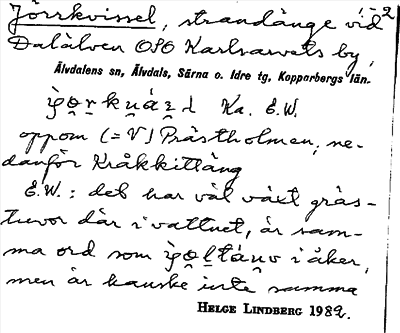 Jörrkvissel, strandänge vid 2
Dalälven OSO Karlsarvets by,
Älvdalens sn, Älvdals, Särna o. Idre tg, Kopparbergs län.
Ka. E.W.
oppom (=V) Prästholmen, ne-
danför Kråkkittläng
E.W.: det har väl växt gräs-
tuvor där i vattnet, är sam-
ma ord som i åker,
men är kanske inte samma
HELGE LINDBERG 1982.